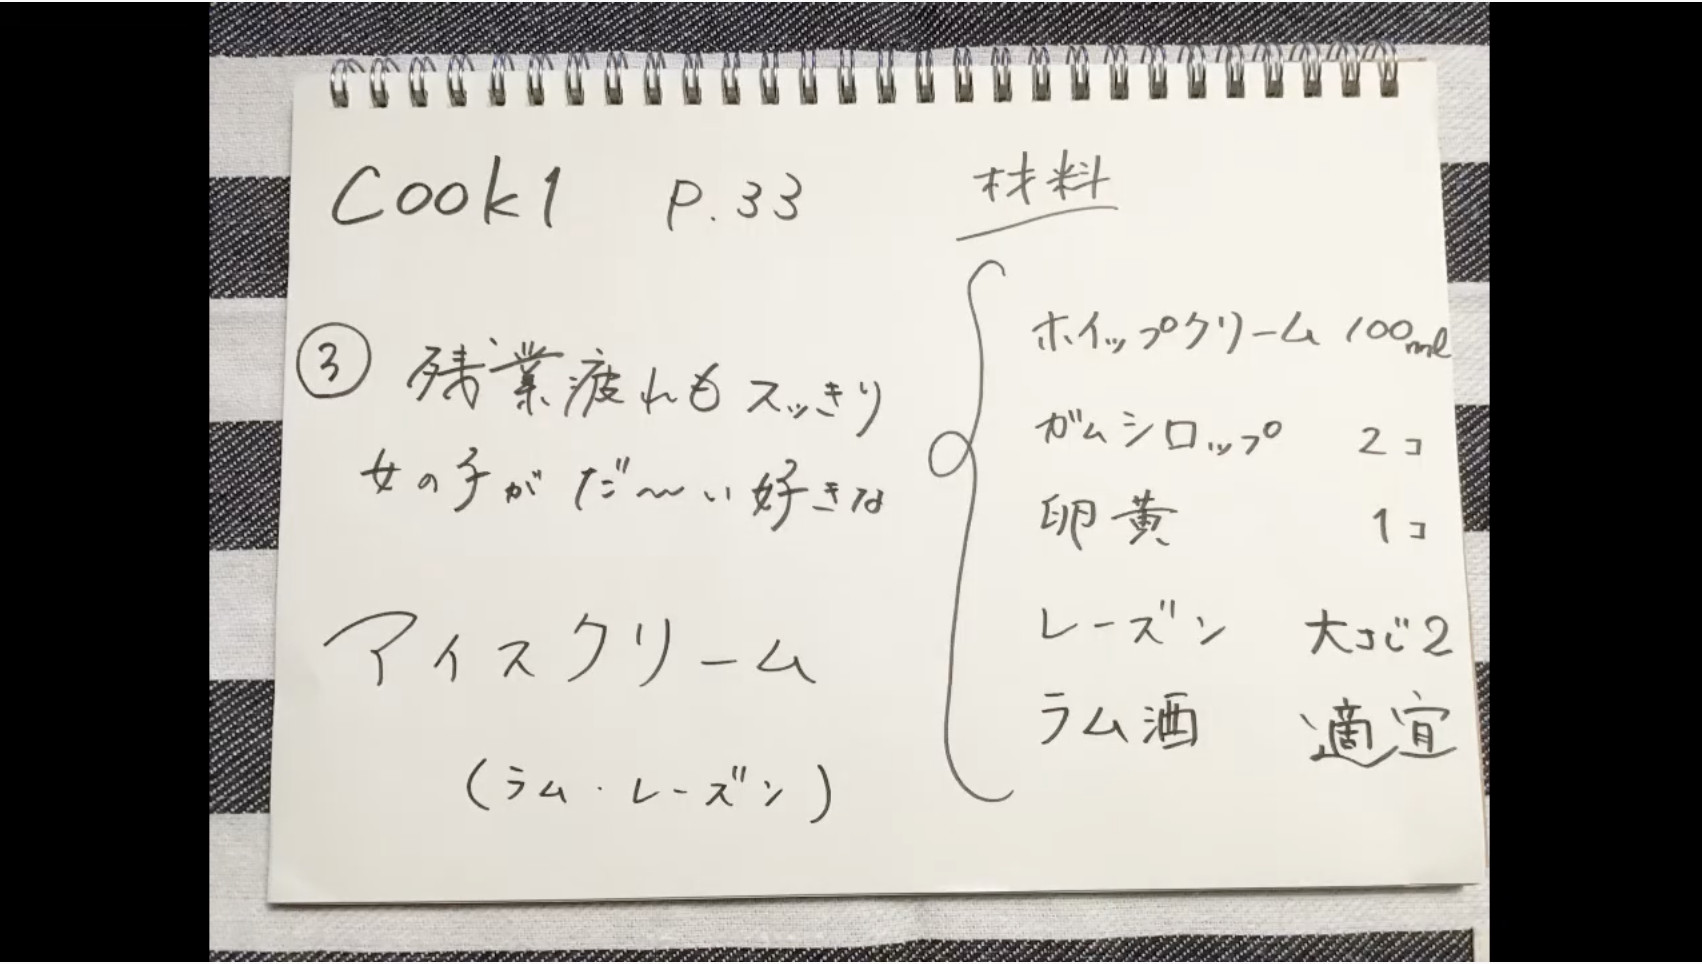 Cook1 P.33
③ 残業疲れもスッきり
女の子がだ〜い好きな
アイスクリーム
(ラム・レーズン)
材料
ホイップクリーム 100ml
ガムシロップ 2コ
卵黄 1コ
レーズン 大さじ2
ラム酒 適宜